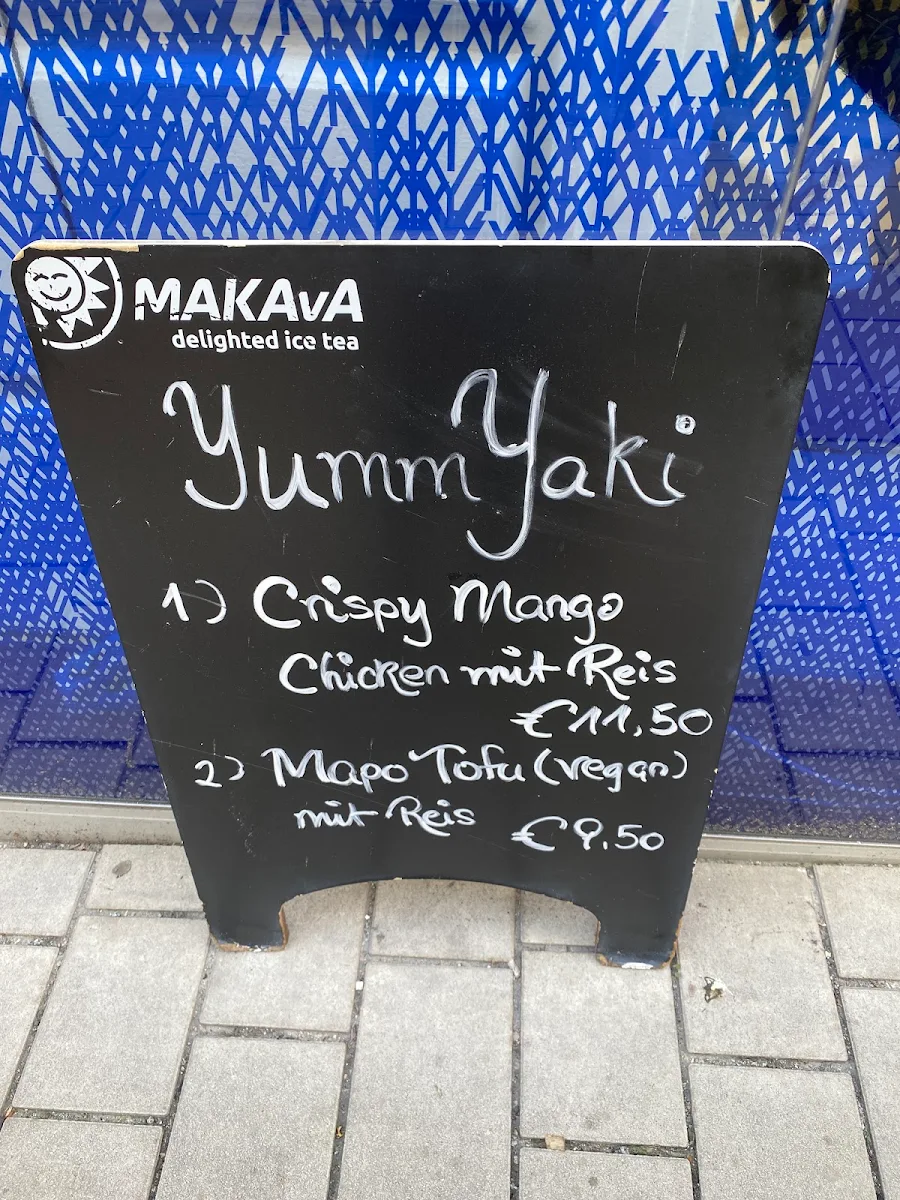 MAKAvA
delighted ice tea
Yumm Yaki
1) Crispy Mango
Chicken mit Reis
€11,50
2) Mapo Tofu (vegan)
mit Reis €9.50